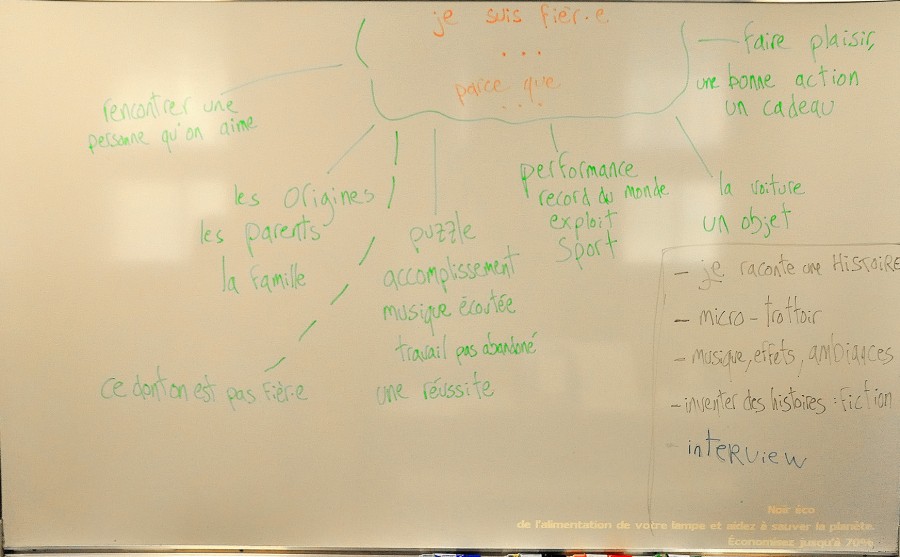 je suis fièr·e
...
parce que
...
faire plaisir,
une bonne action
un cadeau
rencontrer une
personne qu'on aime
les origines
les parents
la famille
ce dont on est pas fièr·e
puzzle
accomplissement
musique écoutée
travail pas abandonné
une réussite
performance
record du monde
exploit
sport
la voiture
un objet
- je raconte une HISTOIRE
- micro-trottoir
- musique, effets, AMBIANCES
- inventer des histoires : fiction
- interview
Noir éco
de l'alimentation de votre lampe et aidez à sauver la planète.
Économisez jusqu'à 70%